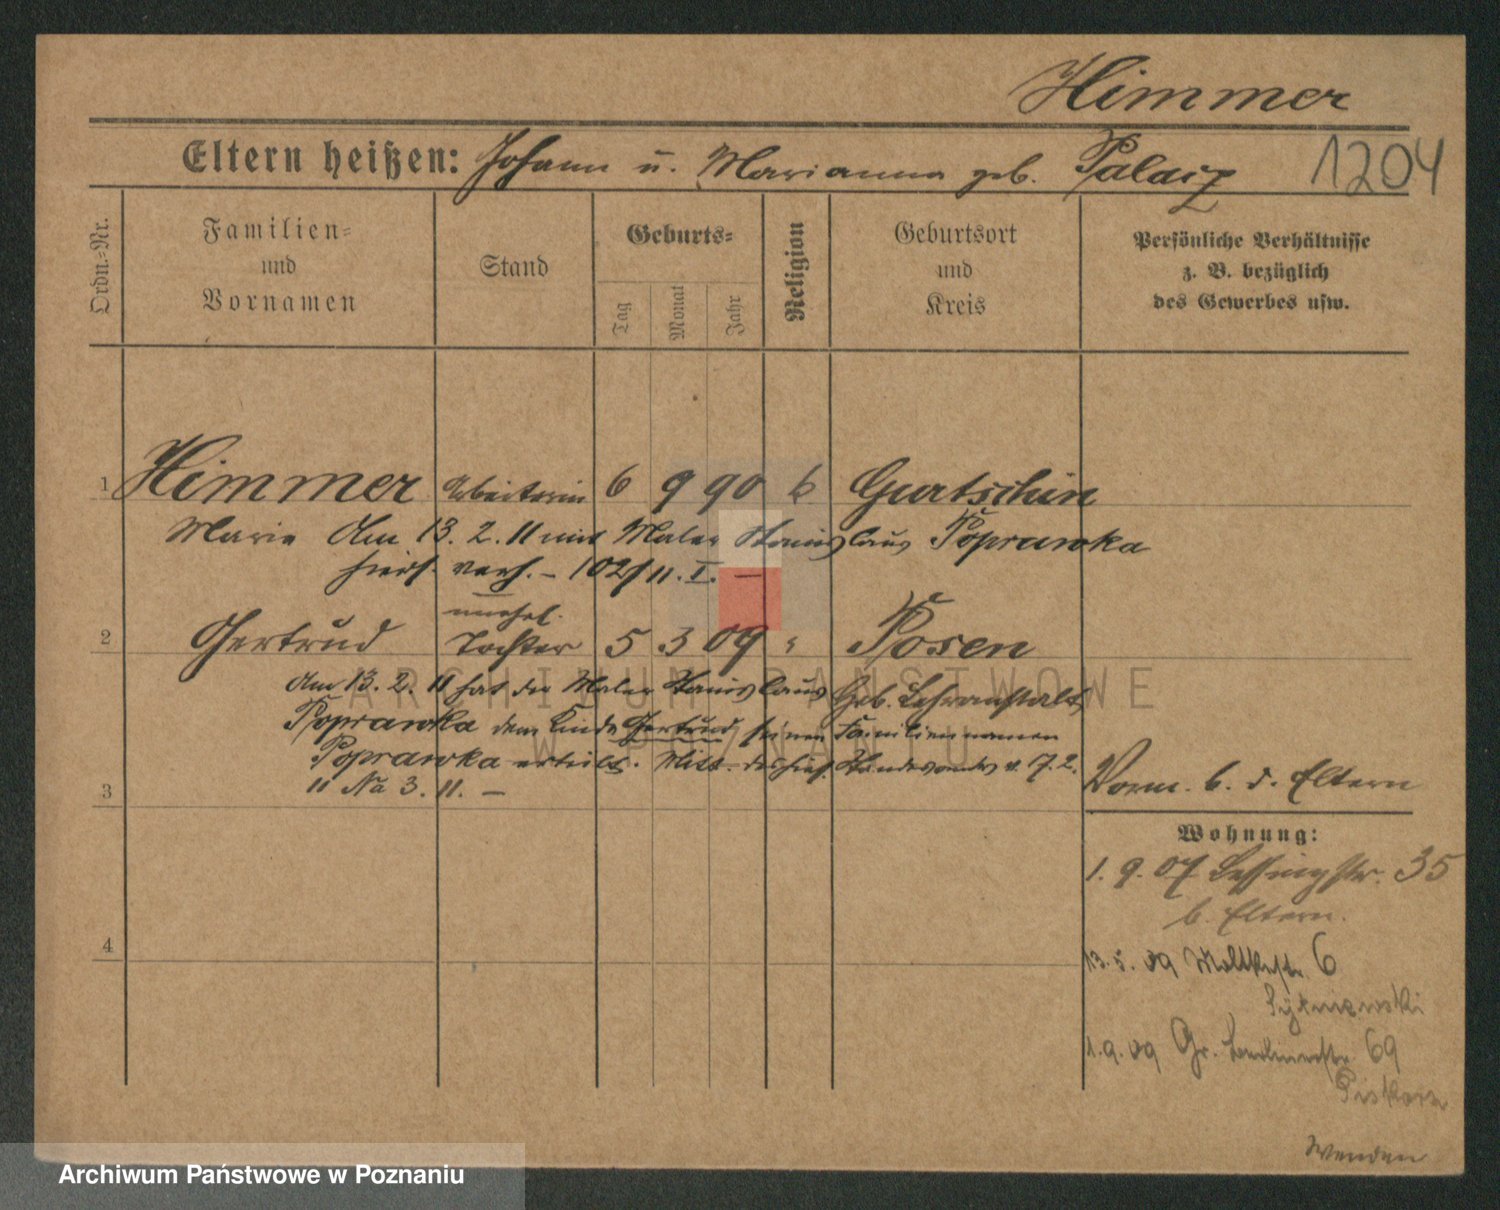 Himmer
Eltern heißen: Johann u. Marianna geb. Palacz
1204
Ordn.-Nr.
Familien-
und
Vornamen
Stand
Geburts-
Tag
Monat
Jahr
Religion
Geburtsort
und
Kreis
Persönliche Verhältnisse
z. B. bezüglich
des Gewerbes usw.
1 Himmer Arbeiterin 6 9 90 k Gurtschin
Marie Am 13. 2. 11 mit Maler Stanislaus Poprawka
hiers. verh. – 102/11. I. –
unehel.
2 Gertrud Tochter 5 3 09 " Posen
Am 13. 2. 11 hat der Maler Stanislaus Geb. Lehranstalt
Poprawka dem Kinde Gertrud seinen Familiennamen
Poprawka erteilt. Mitt. des hies. Standesamtes v. 7. 2.
11 Na 3. 11. –
3
Vorm. b. d. Eltern
Wohnung:
1. 9. 07 Lessingstr. 35
b. Eltern.
4
13. 5. 09 Moltkestr. 6
1. 9. 09 Gr. 69
Piskorz
Wenden
ARCHIWUM PAŃSTWOWE
W POZNANIU
Archiwum Państwowe w Poznaniu